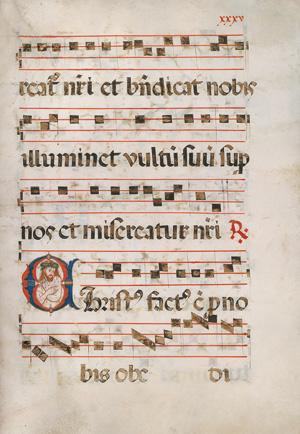 xxxv
reat̃ nr̃i et bñdicat nobis
illuminet vultū suū sup
nos et misereatur nr̃i ℟
Christ᷒ fact᷒ ē p no
bis obe di